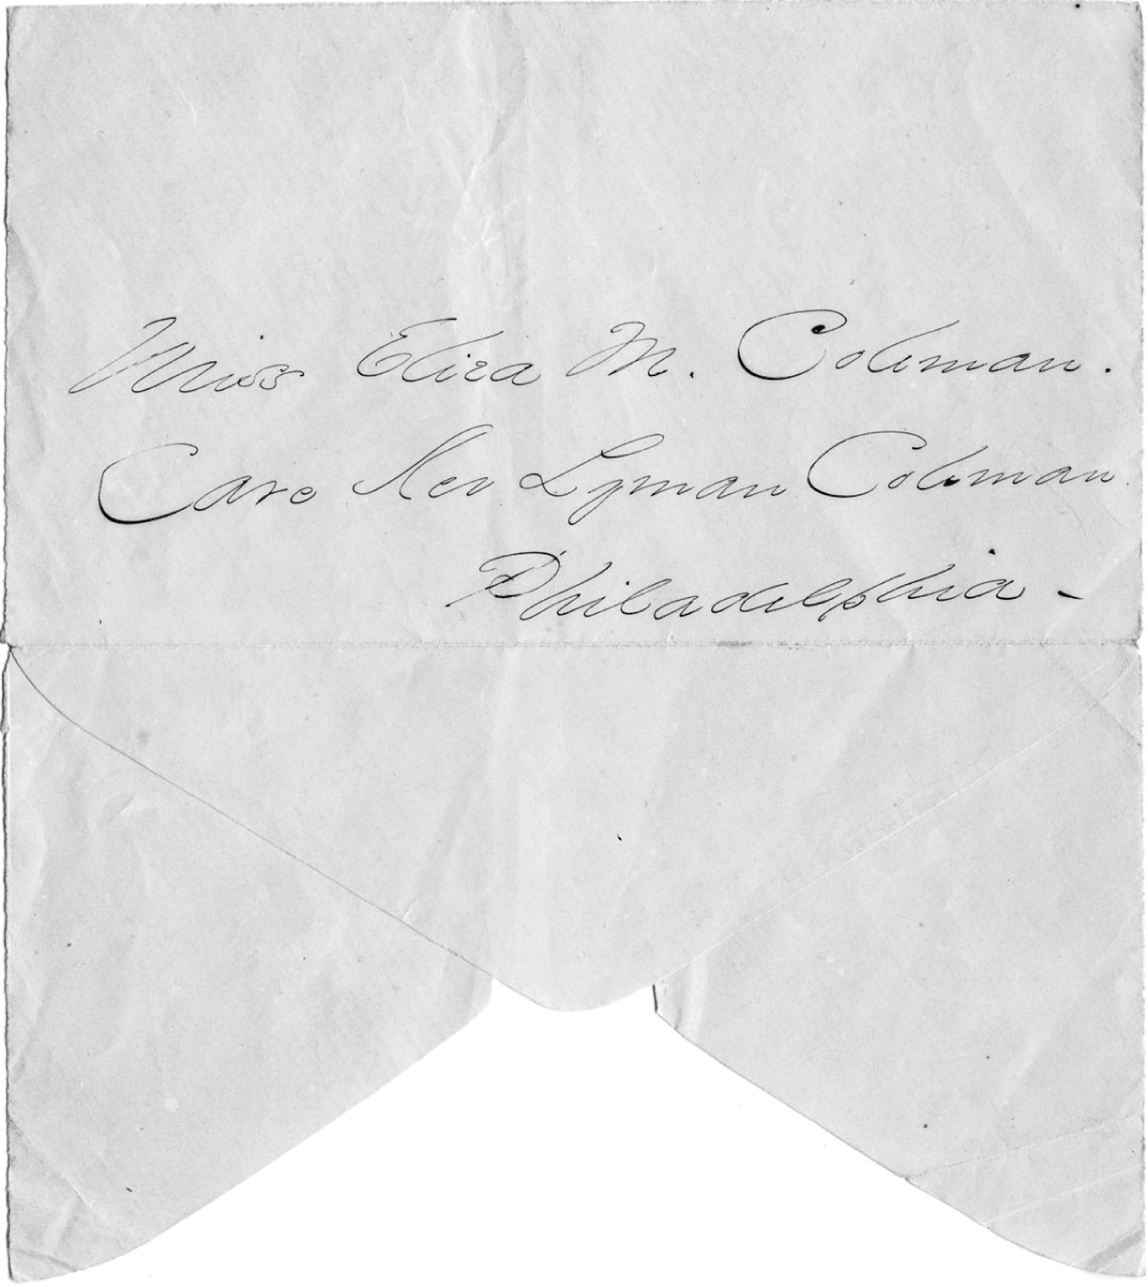 Miss Eliza M. Coleman.
Care Rev Lyman Coleman.
Philadelphia -